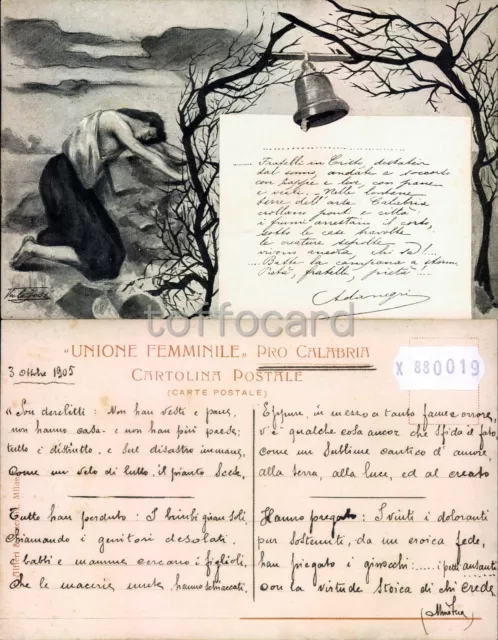 ....................
...... Fratelli in Cristo, destatevi
dal sonno, andate a soccorso
con zappe e leve con pane
e vesti. Nelle lontane
terre dell'arsa Calabria
crollano ponti e città
i fiumi arrestano il corso,
sotto le case travolte
le creature sepolte
vivono ancora, chi sa!...
... Batte la campana a stormo
Pietà, fratelli, pietà......
Ada Negri
toffocard
"UNIONE FEMMINILE" PRO CALABRIA
CARTOLINA POSTALE
(CARTE POSTALE)
X 880019
3 Ottobre 1905
« Son derelitti: Non han veste e pane,
non hanno casa e non han più paese;
tutto è distrutto, e sul disastro immane,
come un velo di lutto il pianto scese.
Tutto han perduto: I bimbi giran soli,
chiamando i genitori desolati.
e babbi e mamme cercano i figlioli,
che le macerie hanno schiacciati.
Eppure, in mezzo a tanto fame e orrore,
v'è qualche cosa ancor che sfida il fato,
come un sublime cantico d'amore,
alla terra, alla luce, ed al creato
Hanno pregato: I vinti i doloranti
pur sostenuti, da un eroica fede,
han piegato i ginocchi...... i petti ansanti
con la virtude stoica di chi crede